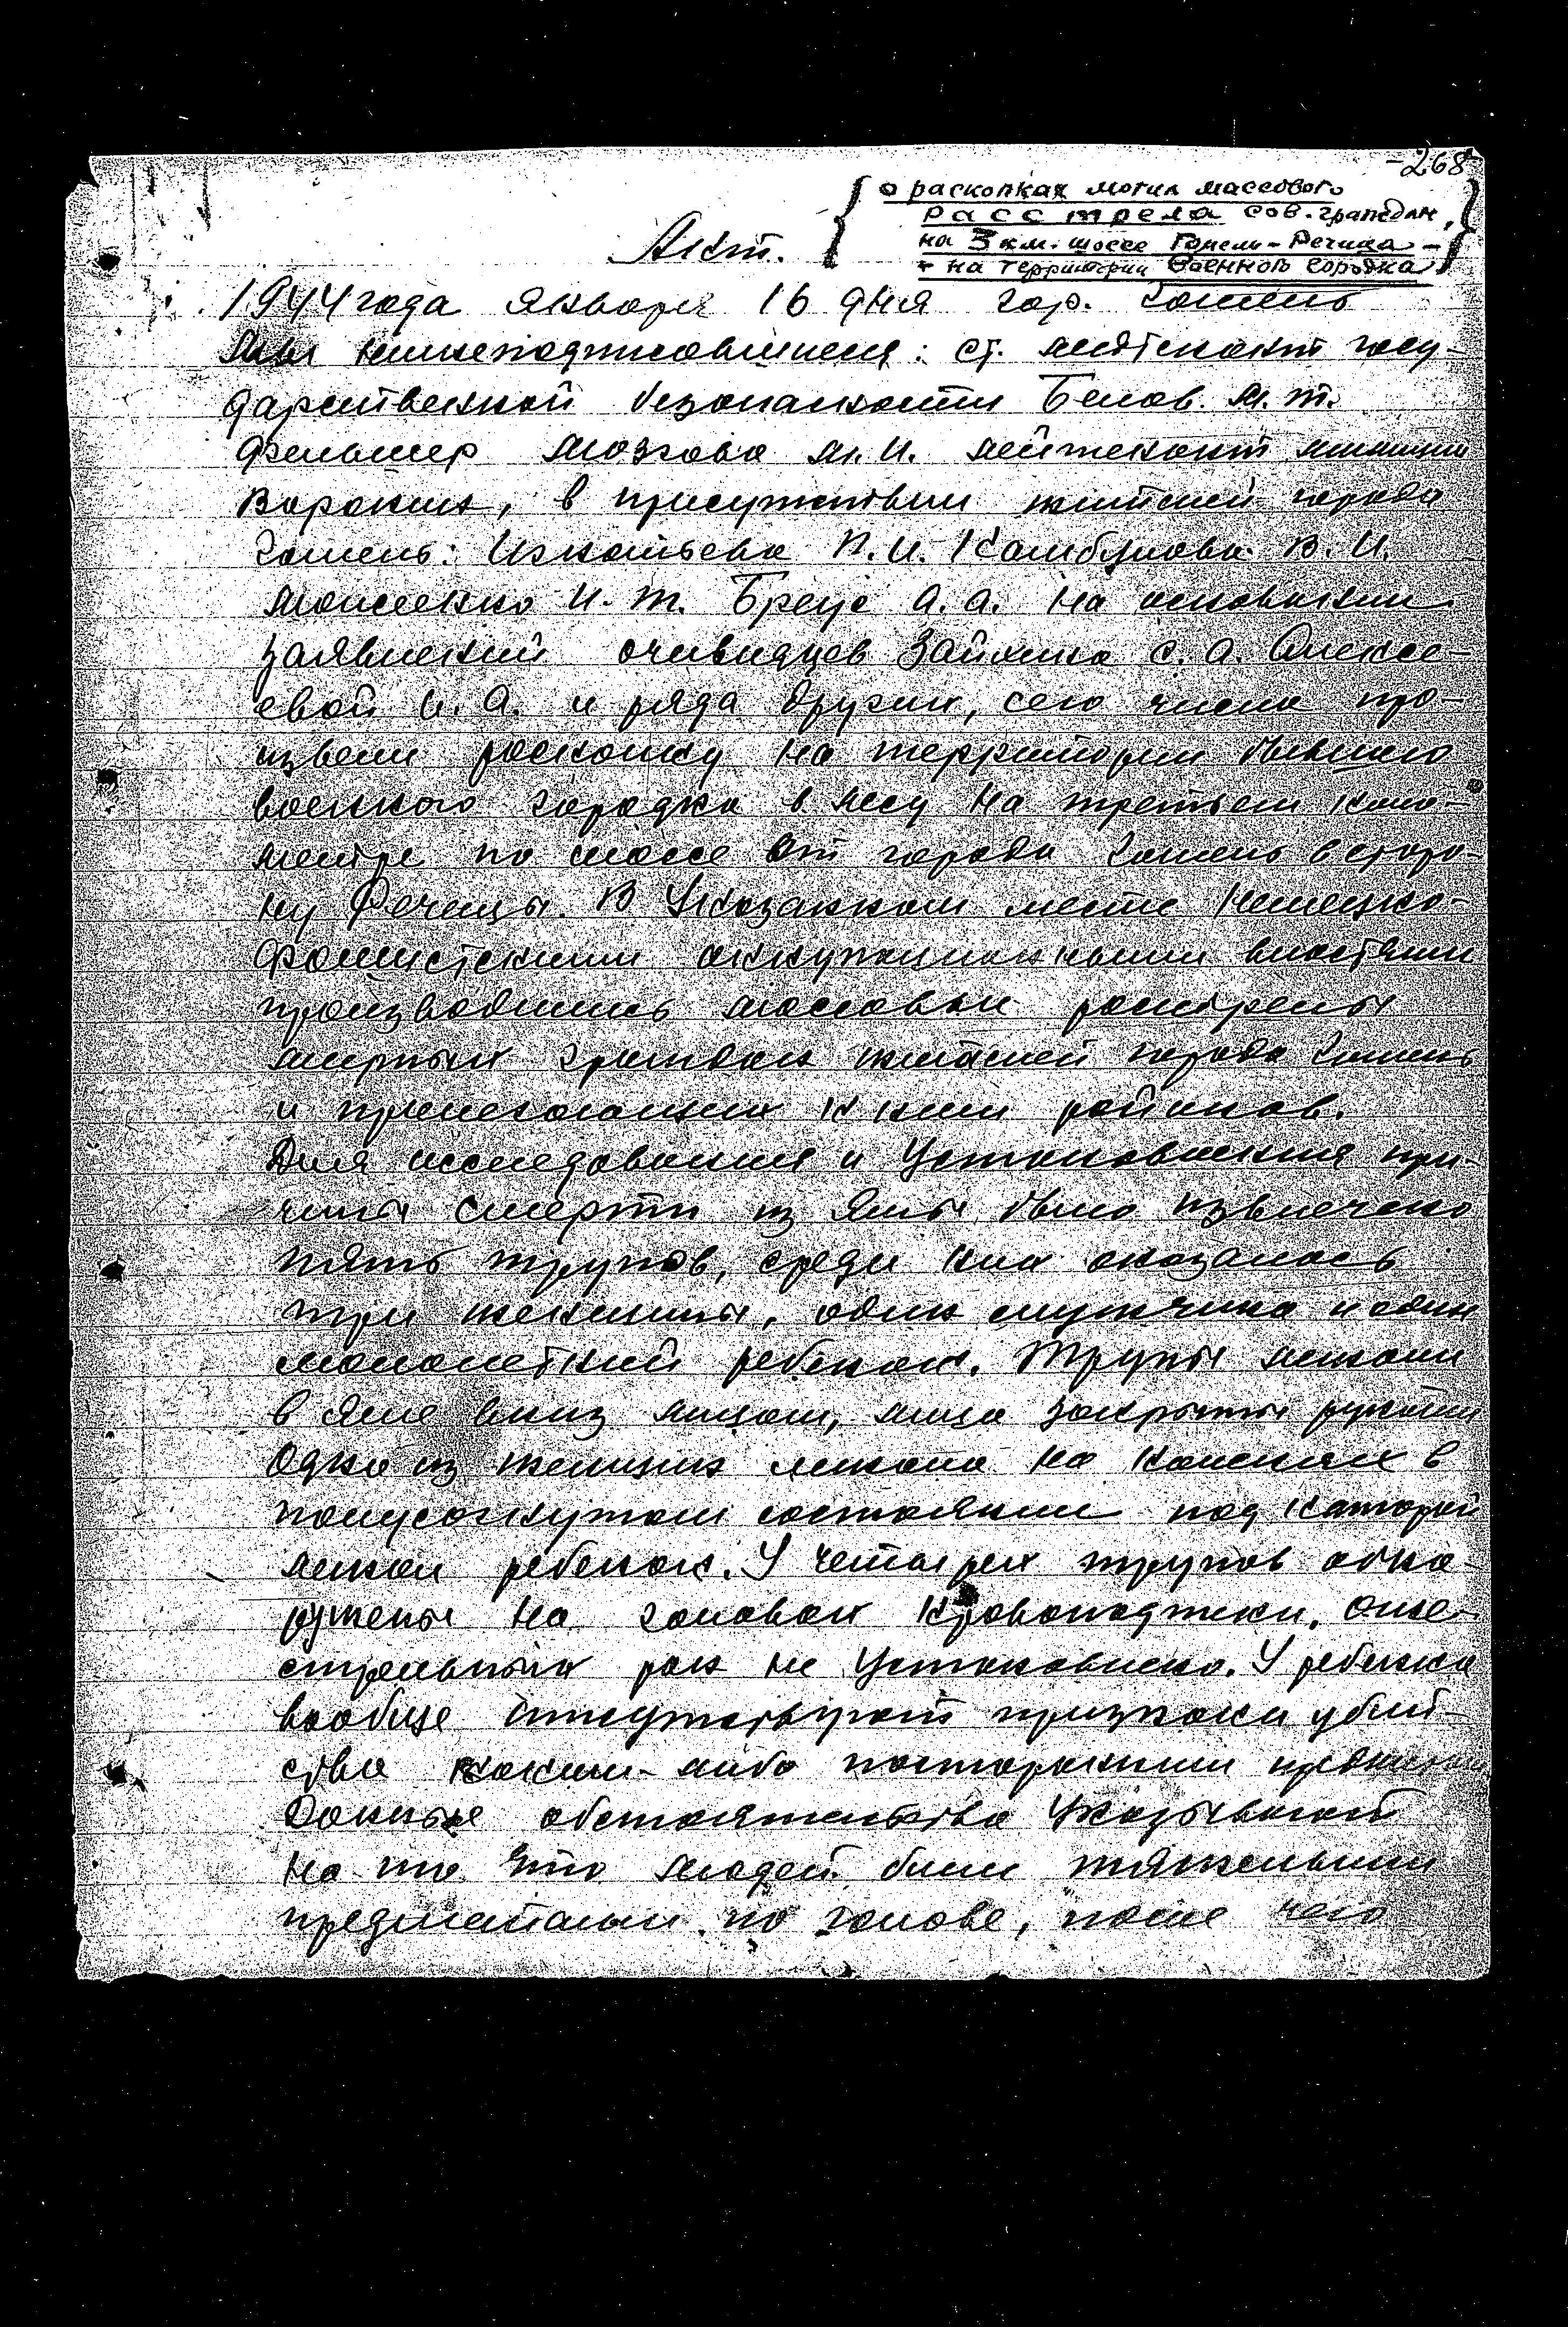 -268
{ о раскопках могил массового
расстрела сов. граждан,
на 3 км. шоссе Гомель-Речица -
- на территории военного городка }
Акт.
1944 года января 16 дня гор. Гомель
Мы нижеподписавшиеся: ст. лейтенант госу-
дарственной безопасности Белов М.Т.
фельдшер Мозгова М.И. лейтенант милиции
Воронин, в присутствии жителей города
Гомель: Игнатьева П.И. В.И.
И.Т. Бреус А.А. на основании
заявлений очевидцев С.А. Алексе-
евой И.А. и ряда других, сего числа про-
извели раскопку на территории бывшего
военного городка в лесу на третьем кило-
метре по шоссе от города Гомель в сторо-
ну Речицы. В Указанном месте немецко-
фашистскими оккупационными властями
производились массовые расстрелы
мирных граждан жителей города Гомель
и прилегающих к ним районов.
Для исследования и Установления при-
чины смерти из ямы было извлечено
пять трупов, среди них оказалось
три женщины, один мужчина и один
малолетний ребенок. Трупы лежали
в яме вниз лицом, лица закрыты руками
Одна из женщин лежала на коленях в
полусогнутом состоянии под которой
лежал ребенок. У четырех трупов обна-
ружены на головах кровоподтеки, огне-
стрельных ран не Установлено. У ребенка
вообще отсутствуют признаки убий-
ства каким-либо посторонним
Данные обстоятельства Указывают
на то что людей били тяжелыми
предметами по голове, после чего